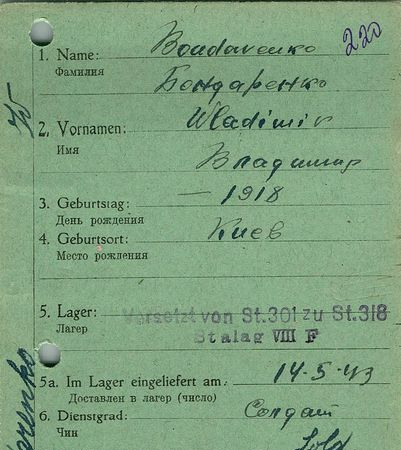 1. Name: Bondarenko 220
Фамилия
Бондаренко
75
2. Vornamen: Wladimir
Имя
Владимир
3. Geburtstag: — 1918
День рождения
4. Geburtsort: Киев
Место рождения
5. Lager: Versetzt von St.301 zu St.318
Лагер Stalag VIII F
5a. Im Lager eingeliefert am: 14-5-43
Доставлен в лагер (число)
6. Dienstgrad: Солдат
Чин
Sold
renko